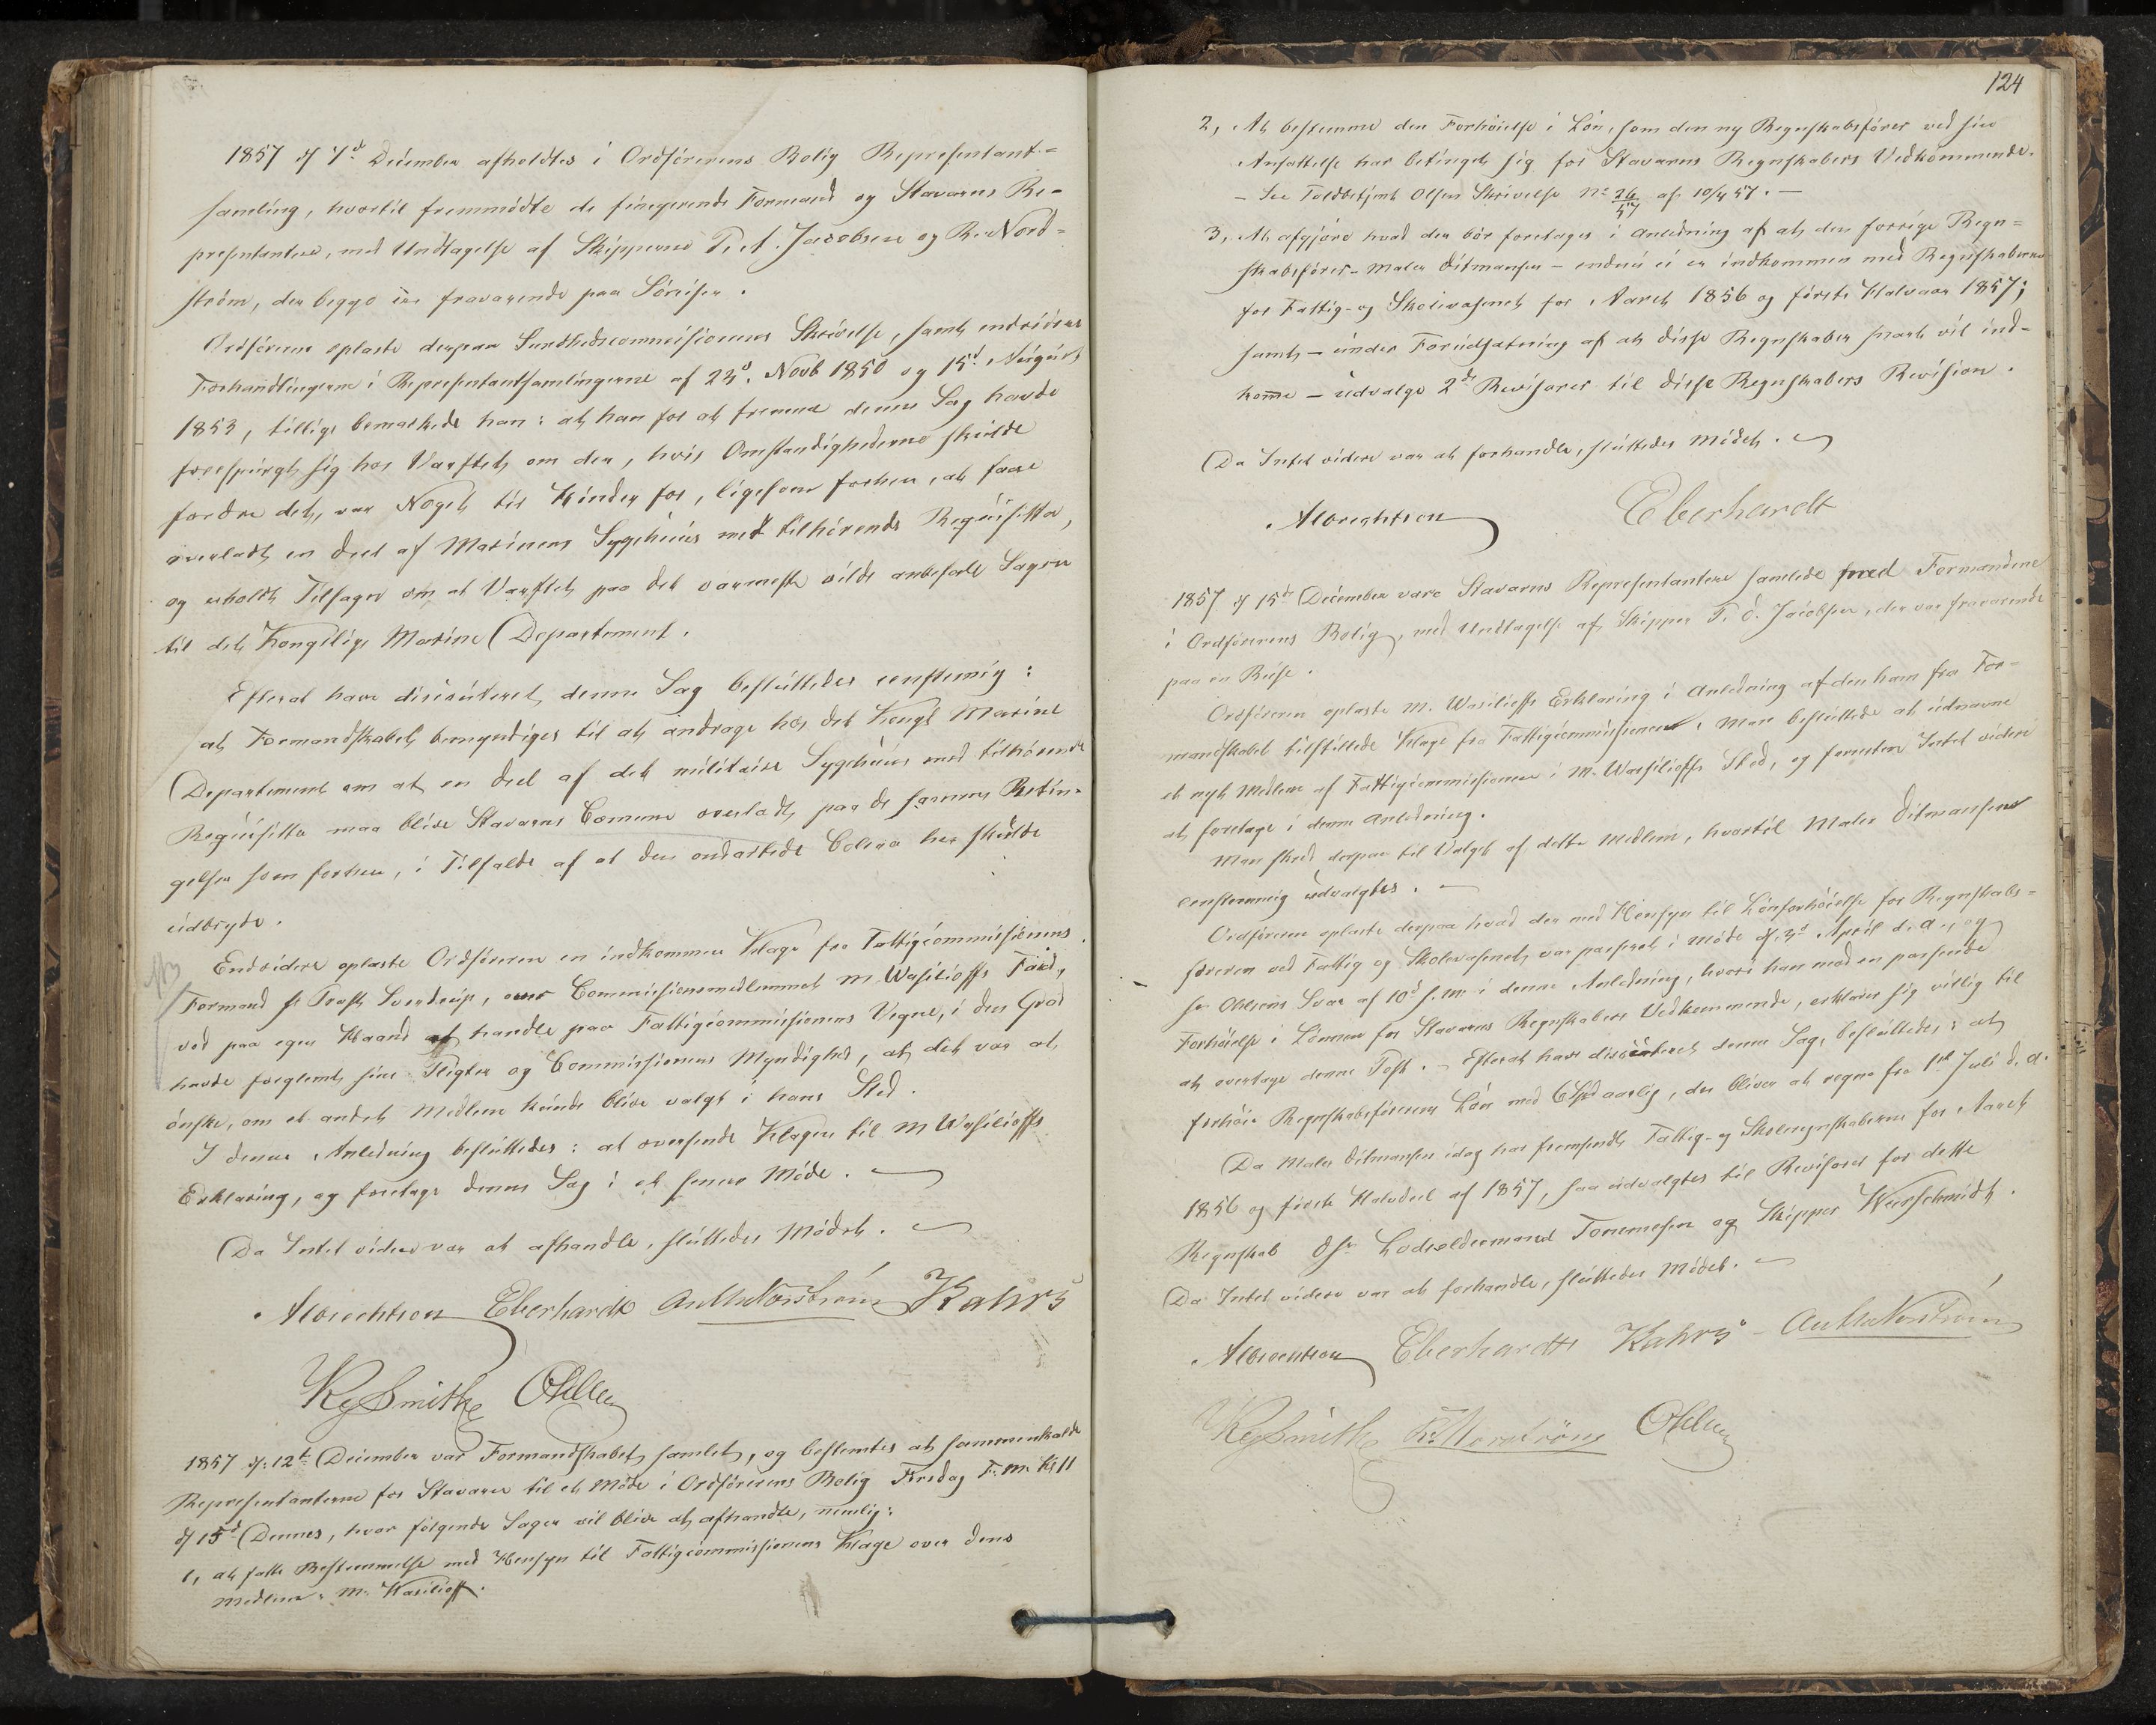 1857 d 7d December afholdtes i Ordførerens Bolig Repræsentant-
samling, hvortil fremmødte de fungerende Formænd og Staværns Re-
præsentantere, med Undtagelse af Skipperne T. A. Jacobsen og R. Nord-
strøm, der begge ere fraværende paa Søreiser.
Ordføreren oplæste derpaa Sundhedscommissionens Skrivelse, samt endvidere
Forhandlingerne i Repræsentantsamlingerne af 23d Novb 1850 og 15d August
1853, tillige bemærkede han: at han for at fremme denne Sag havde
forespurgt sig hos Værftet, om der, hvis Omstændighederne skulde
fordre det, var Noget til Hinder for, ligesom forhen, at faae
overladt en Deel af Marinens Sygehuus med tilhørende Requisitta,
og erholdt Tilsagn om at Værftet paa det varmeste vilde anbefale Sagen
til det Kongelige Marine Departement.
Efterat have discuteret denne Sag besluttedes eenstemig:
at Formandskabet bemyndiges til at andrage hos det Kongl Marine
Departement om at en Deel af det militaire Sygehuus med tilhørende
Requisitta maa blive Staværns Comune overladt, paa de samme Betin-
gelser som forhen, i Tilfælde af at den ondartede Colera her skulde
udbryde.
Endvidere oplæste Ordføreren en indkommen Klage fra Fattigcommissionens
Formand Hr Provst Sverdrup, over Commissionsmedlemmet M. Wasilioffs Færd,
ved paa egen Haand at handle paa Fattigcommissionens Vegne, i den Grad
havde forglemt sine Pligter og Commissionens Myndighed, at det var at
ønske, om et andet Medlem kunde blive valgt i hans Sted.
I denne Anledning besluttedes: at oversende Klagen til M Wasilioffs
Erklæring, og foretage denne Sag i et senere Møde.
Da Intet videre var at afhandle, sluttedes Mødet.
Albrechtson Eberhardt Kahrs
Smith
1857 d. 12te December var Formandskabet samlet, og bestemtes at sammenkalde
Repræsentanterne for Staværn til et Møde i Ordførerens Bolig Tirsdag F.M. Kl 11
d 15d Dennes, hvor følgende Sager vil blive at afhandle, nemlig:
1, at fatte Bestemmelse med Hensyn til Fattigcommissionens Klage over dens
Medlem M. Wasilioff.
124
2, At bestemme den Forhøielse i Løn, som den ny Regnskabsfører ved sin
Ansættelse har betinget sig for Staværns Regnskabers Vedkommende.
- See Toldbetjent Olsen Skrivelse No 26/57 af 10/4 57. -
3, At afgjøre hvad der bør foretages i Anledning af at den forrige Regn-
skabsfører - Maler Ditmansen - endnu ei er indkommen med Regnskaberne
for Fattig- og Skolevæsenet for Aaret 1856 og første Halvaar 1857;
samt - under Forudsætning af at disse Regnskaber snart vil ind-
komme - udvælge 2de Revisorer til disse Regnskabers Revision.
Da Intet videre var at forhandle, sluttedes Mødet.
Albrechtson Eberhardt
1857 d 15de December vare Staværns Repræsentantere samlede med Formændene
i Ordførerens Bolig, med Undtagelse af Skipper T. A. Jacobsen, der var fraværende
paa en Reise.
Ordføreren oplæste M. Wasilioffs Erklæring i Anledning af den ham fra For-
mandskabet tilstillede Klage fra Fattigcommissionen. Man besluttede at udnævne
et nyt Medlem af Fattigcommissionen i M. Wasilioffs Sted, og forresten Intet videre
at foretage i denne Anledning.
Man skred derpaa til Valget af dette Medlem, hvortil Maler Ditmansen
eenstemmig udvalgtes.
Ordføreren oplæste derpaa hvad der med Hensyn til Lønforhøielse for Regnskabs-
føreren ved Fattig og Skolevæsenet, var passeret i Møde d. 3d April d. A., og
Hr Olsens Svar af 10d s. M. i denne Anledning, hvori han mod en passende
Forhøielse i Lønnen for Staværns Regnskabers Vedkommende, erklærer sig villig til
at overtage denne Post. - Efterat have discuteret denne Sag, besluttedes: at
forhøie Regnskabsførerens Løn med 6 Spd aarlig, der bliver at regne fra 1ste Juli d. A.
Da Maler Ditmansen idag har fremsendt Fattig- og Skoleregnskaberne for Aaret
1856 og første Halvdeel af 1857, saa udvalgtes til Revisorer for dette
Regnskab DHr Lodsoldermand Tommesen og Skipper Weirschmidt.
Da Intet videre var at forhandle, sluttedes Mødet.
Albrechtson Eberhardt Kahrs
Smith R. Nordstrøm